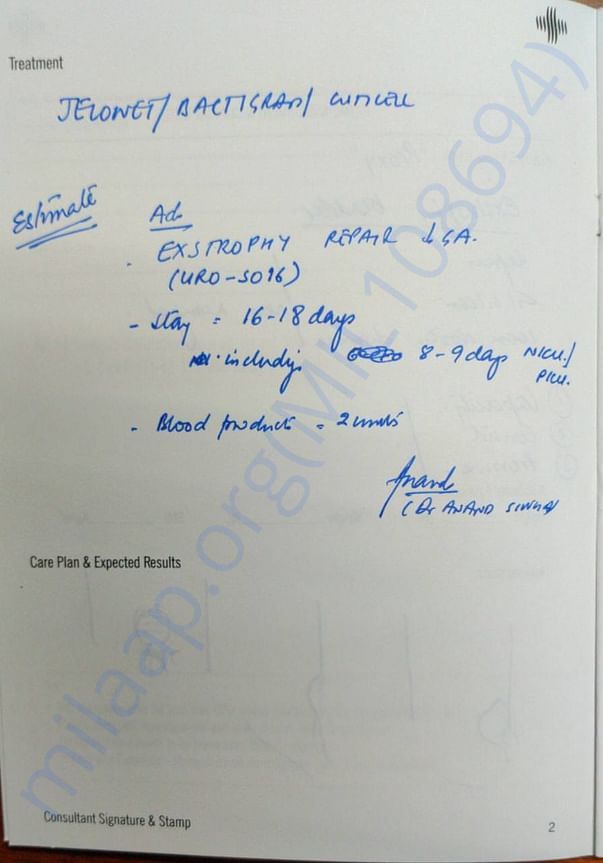 Treatment
JELONET/ BACTIGRAS/ CUTICELL
Estimate
Ad.
. EXSTROPHY REPAIR ↓ GA.
(URO-5096)
- Stay = 16-18 days
. includg. 8-9 days NICU/
PICU.
- Blood products = 2 units
Anand
(Dr ANAND SINHA)
Care Plan & Expected Results
Consultant Signature & Stamp
2
milaap.org(MIL108694)